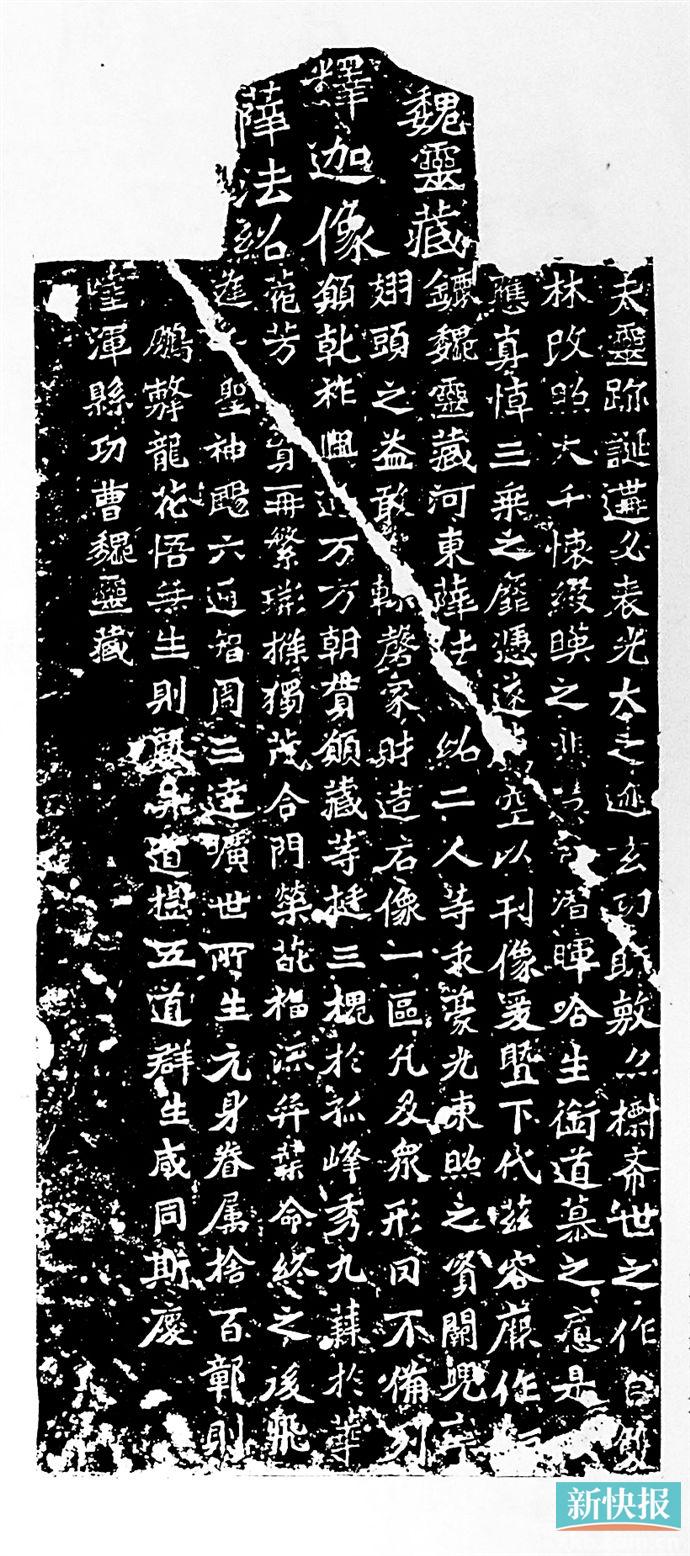 魏靈藏
釋迦像
薛法紹
夫靈跡誕遘必表光大之迹玄功既敷亦標希世之作自雙
林改照大千懷綴暎之悲潛暉哈生銜道慕之痛是
應真悼三乘之靡憑遂騰空以刊像爰暨下代茲容厥作
鏕魏靈藏河東薛法紹二人等求豪光東照之資闕兜率
翅頭之益敢輒磬家財造石像一區凡及眾形罔不備列
願乾祚興延万方朝貫願藏等挺三槐於孤峰秀九蕀於華
菀芳實再繁荊條獨茂合門榮葩福流弈葉命終之後飛
逢聖神颺六通智周三達曠世所生元身眷属捨百鄣則
鵬擊龍花悟無生則鳳昇道樹五道群生咸同斯慶
陸渾縣功曹魏靈藏
新快报